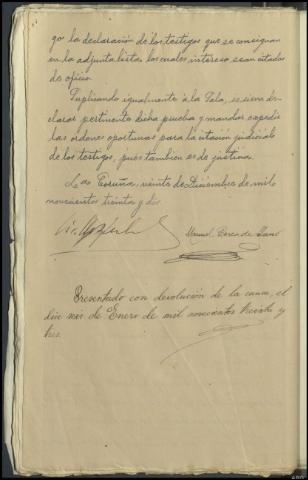 go la declaración de los testigos que se consignan
en la adjunta lista los cuales intereso sean citados
de oficio.
Suplicando igualmente á la Sala, se sirva de-
clarar pertinente dicha prueba y mandar expedir
las ordenes oportunas para la citación judicial
de los testigos, pues tambien es de justicia.
La Coruña, veinte de Diciembre de mil
novecientos treinta y dos
Manuel
Presentado con devolución de la causa, el
dia seis de Enero de mil novecientos treinta y
tres.